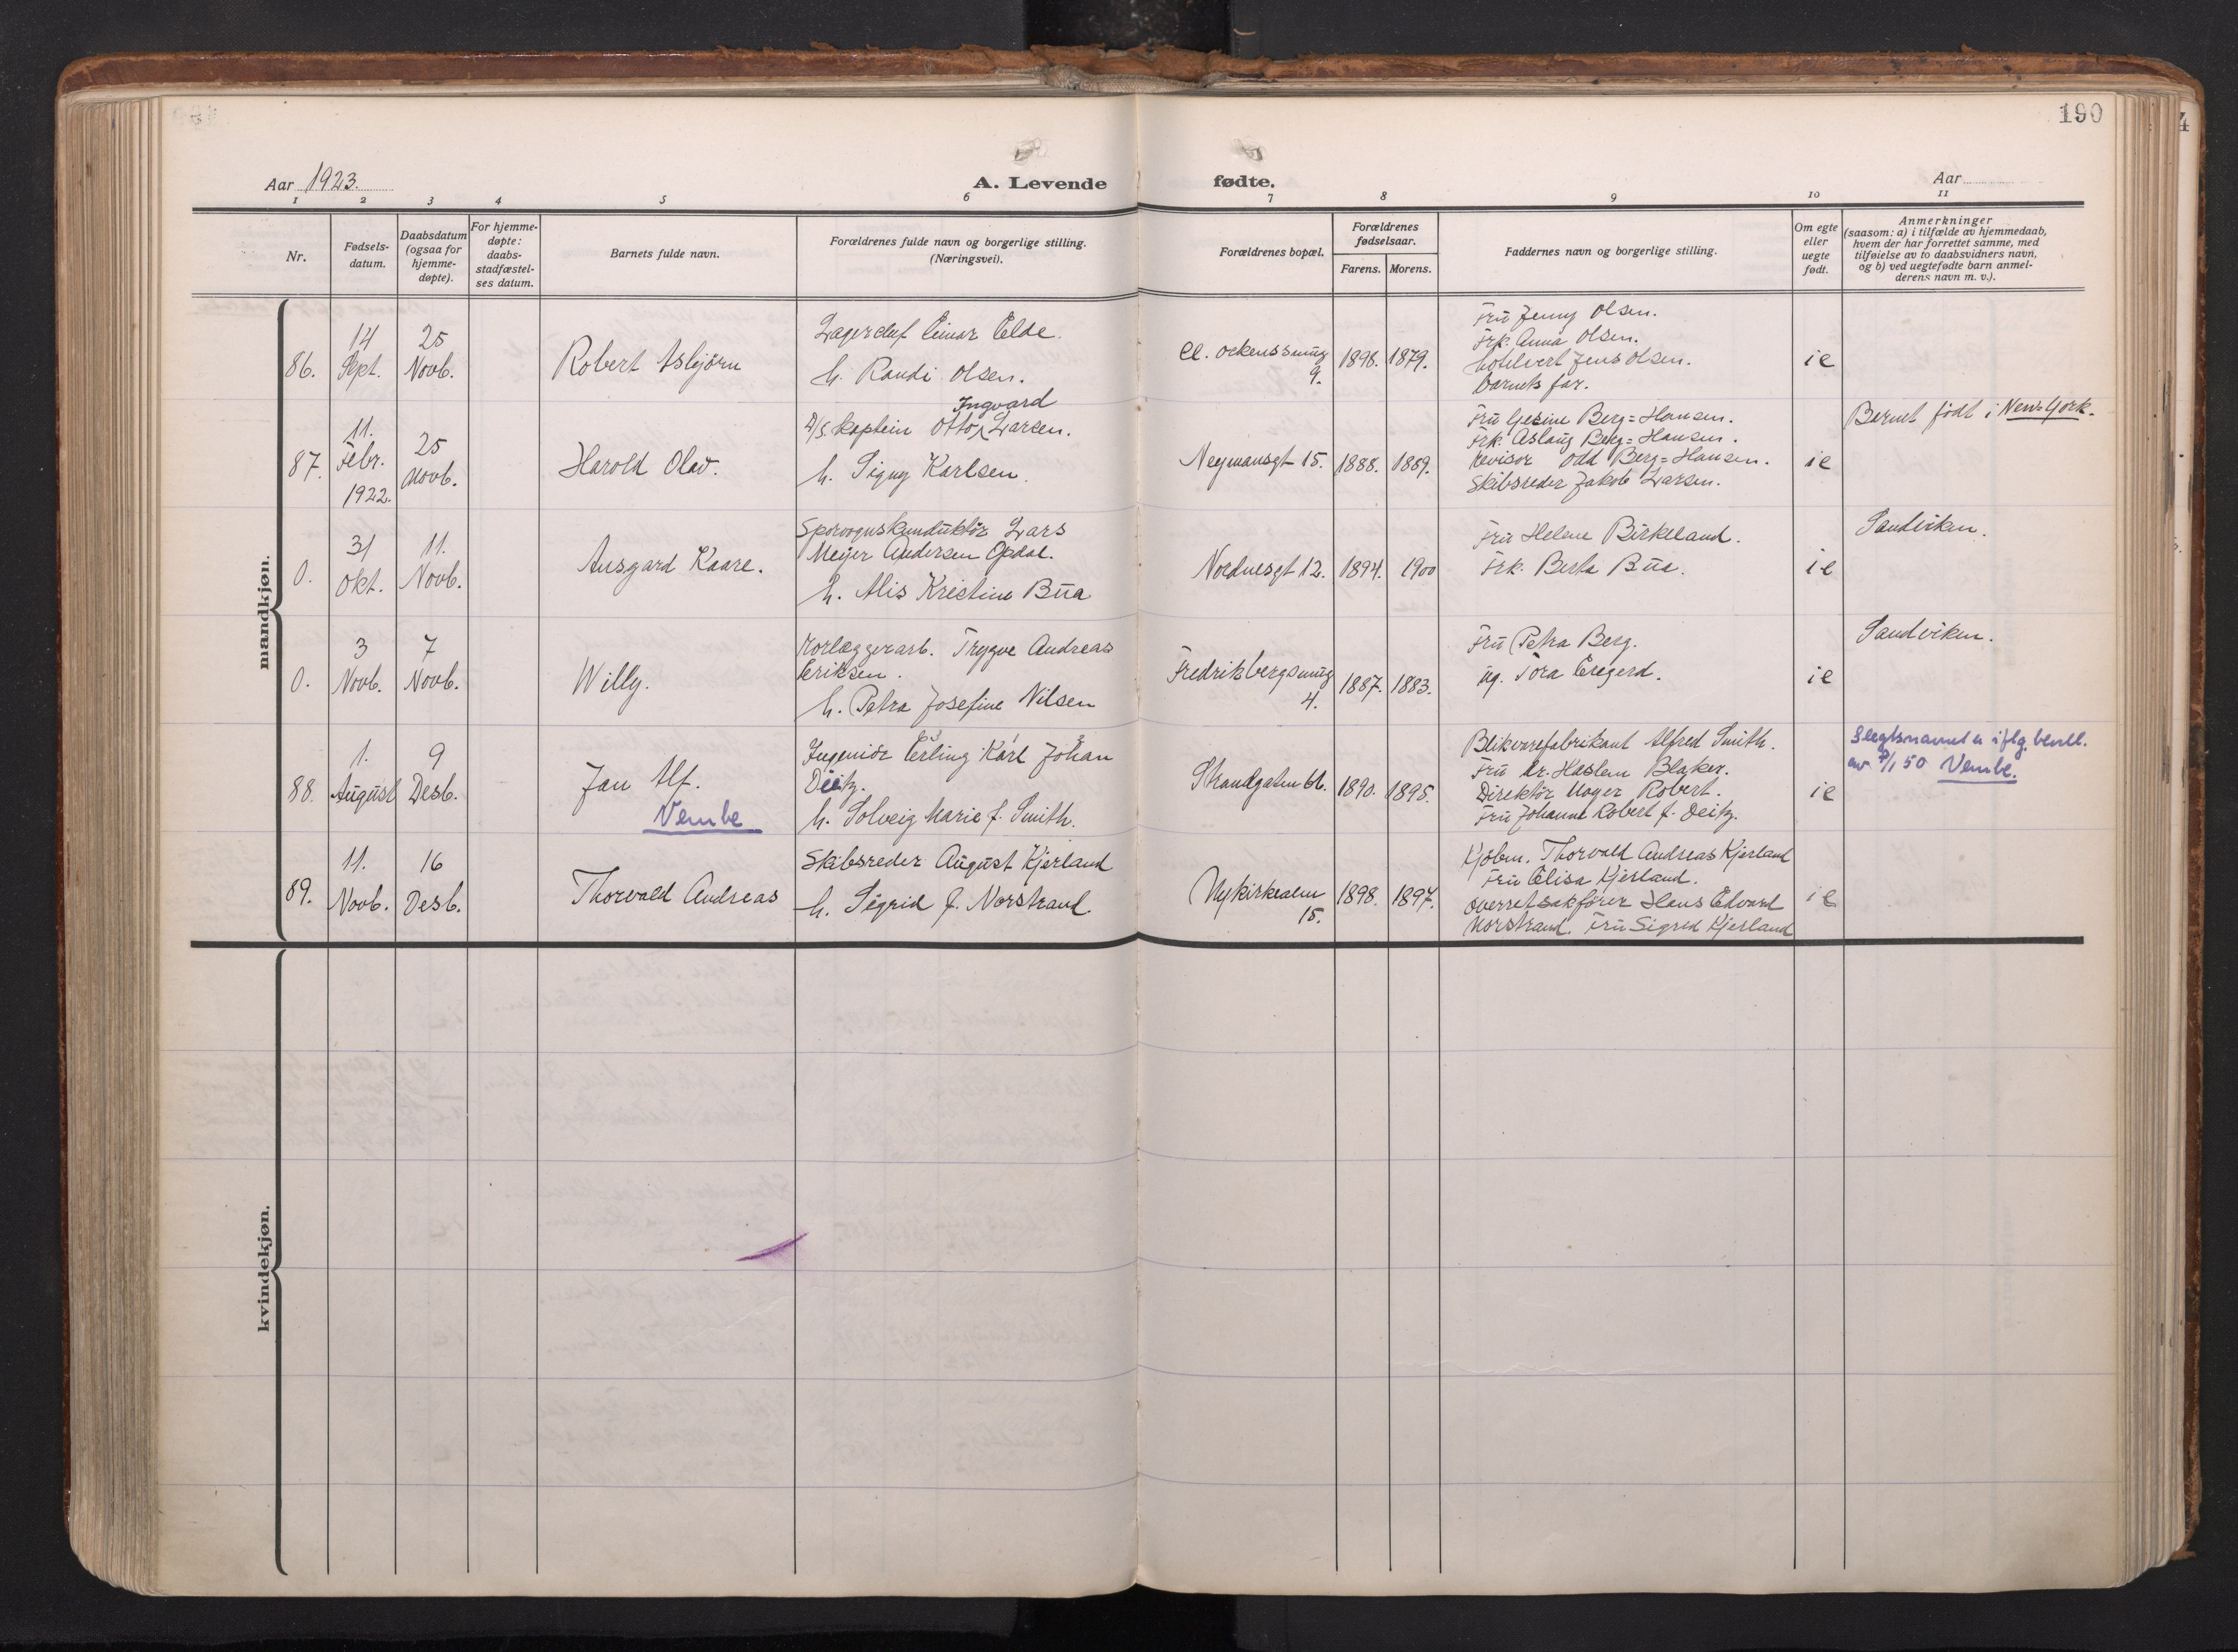 190
Aar 1923.
A. Levende fødte.
Aar
1 2 3 4 5 6 7 8 9 10 11
Nr.
Fødsels-
datum.
Daabsdatum
(ogsaa for
hjemme-
døpte).
For hjemme-
døpte:
daabs-
stadfæstel-
ses datum.
Barnets fulde navn.
Forældrenes fulde navn og borgerlige stilling.
(Næringsvei).
Forældrenes bopæl.
Forældrenes
fødselsaar.
Farens. Morens.
Faddernes navn og borgerlige stilling.
Om egte
eller
uegte
født.
Anmerkninger
(saasom: a) i tilfælde av hjemmedaab,
hvem der har forrettet samme, med
tilføielse av to daabsvidners navn,
og b) ved uegtefødte barn anmel-
derens navn m. v.).
mandkjøn.
86.
14
Sept.
25
Novb.
Robert Asbjörn
Lagerchef Einar Elde.
h. Randi Olsen.
Cl. Ockenssmug
9.
1898. 1879.
Fru Jenny Olsen.
Frk. Anna Olsen.
Hotelvert Jens Olsen.
Barnets far.
ie
87.
11.
Febr.
1922.
25
Novb.
Harold Olav.
Ingvard
D/S. kaptein Otto Larsen.
h. Signy Karlsen.
Neymansgt 15.
1888. 1889.
Fru Gesine Berg=Hansen.
Frk. Aslaug Berg=Hansen.
Revisor Odd Berg=Hansen.
Skibsreder Jakob Larsen.
ie
Barnet födt i New-York.
0.
31
Okt.
11.
Novb.
Ansgard Kaare.
Sporvognskunduktör Lars
Meyer Andersen Opdal.
h. Alis Kristine Bua
Nordnesgt 12.
1894. 1900
Fru Helene Birkeland.
Frk. Berta Bua.
ie
Sandviken.
0.
3
Novb.
7
Novb.
Willy.
Rorlæggerarb. Trygve Andreas
Eriksen.
h. Petra Josefine Nilsen
Fredrikbergsmug
4.
1887. 1883.
Fru Petra Berg.
ug. Tora
ie
Sandviken.
88.
1.
August
9
Desb.
Jan Alf.
Vembe
Ingeniör Erling Karl Johan
Deitz.
h. Solveig Marie f. Smith.
Strandgaten 61.
1890. 1895.
Blikvarefabrikant Alfred Smith.
Fru Dr. Haslem Blaker.
Direktör Robert.
Fru Johanne Robert f. Deitz.
ie
Slegtsnavnet er iflg. bevill.
av 50 Vembe.
89.
11.
Novb.
16
Desb.
Thorvald Andreas
Skibsreder August Kjerland
h. Sigrid f. Norstrand.
Nykirkealm
15.
1898. 1897.
Kjöbm. Thorvald Andreas Kjerland
Fru Elisa Kjerland.
Overretssakförer Hans Edvard
Norstrand. Fru Sigrid Kjerland
ie
kvindekjøn.